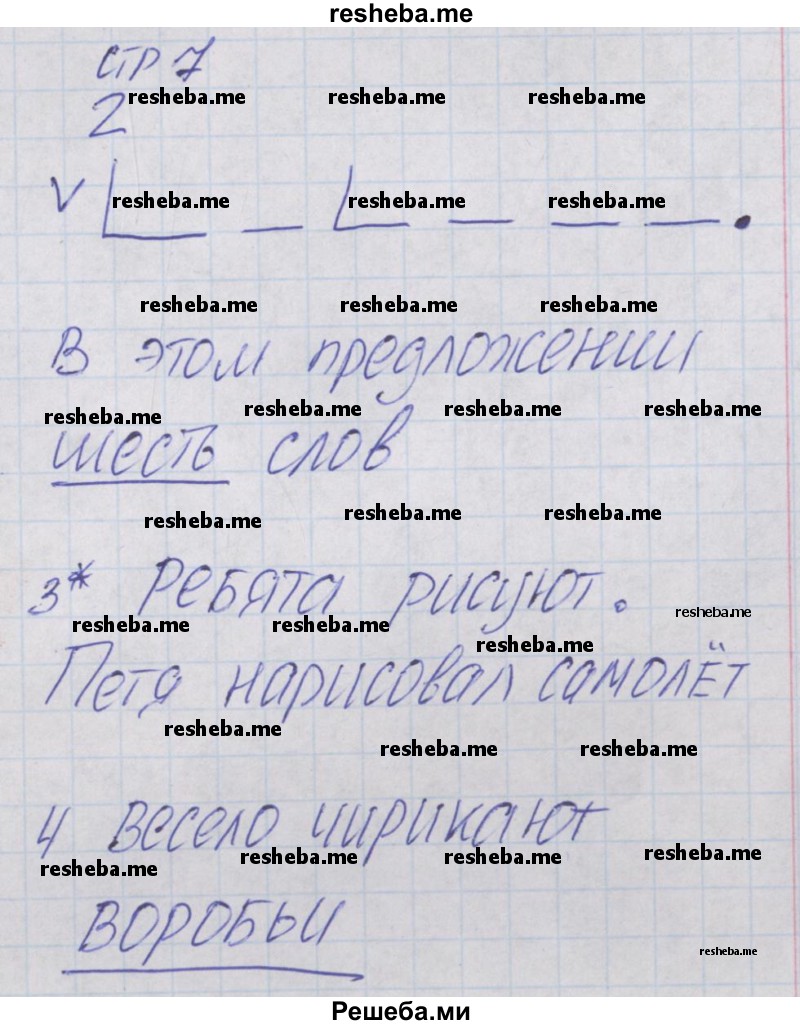 resheba.me
стр 7
resheba.me resheba.me resheba.me
2
V resheba.me resheba.me resheba.me .
resheba.me resheba.me resheba.me
В этом предложении
resheba.me resheba.me resheba.me resheba.me
шесть слов
resheba.me resheba.me resheba.me
3* Ребята рисуют.
resheba.me resheba.me resheba.me
resheba.me
Петя нарисовал самолёт
resheba.me
resheba.me resheba.me
4 Весело чирикают
resheba.me resheba.me resheba.me resheba.me
воробьи
resheba.me
Решеба.ми